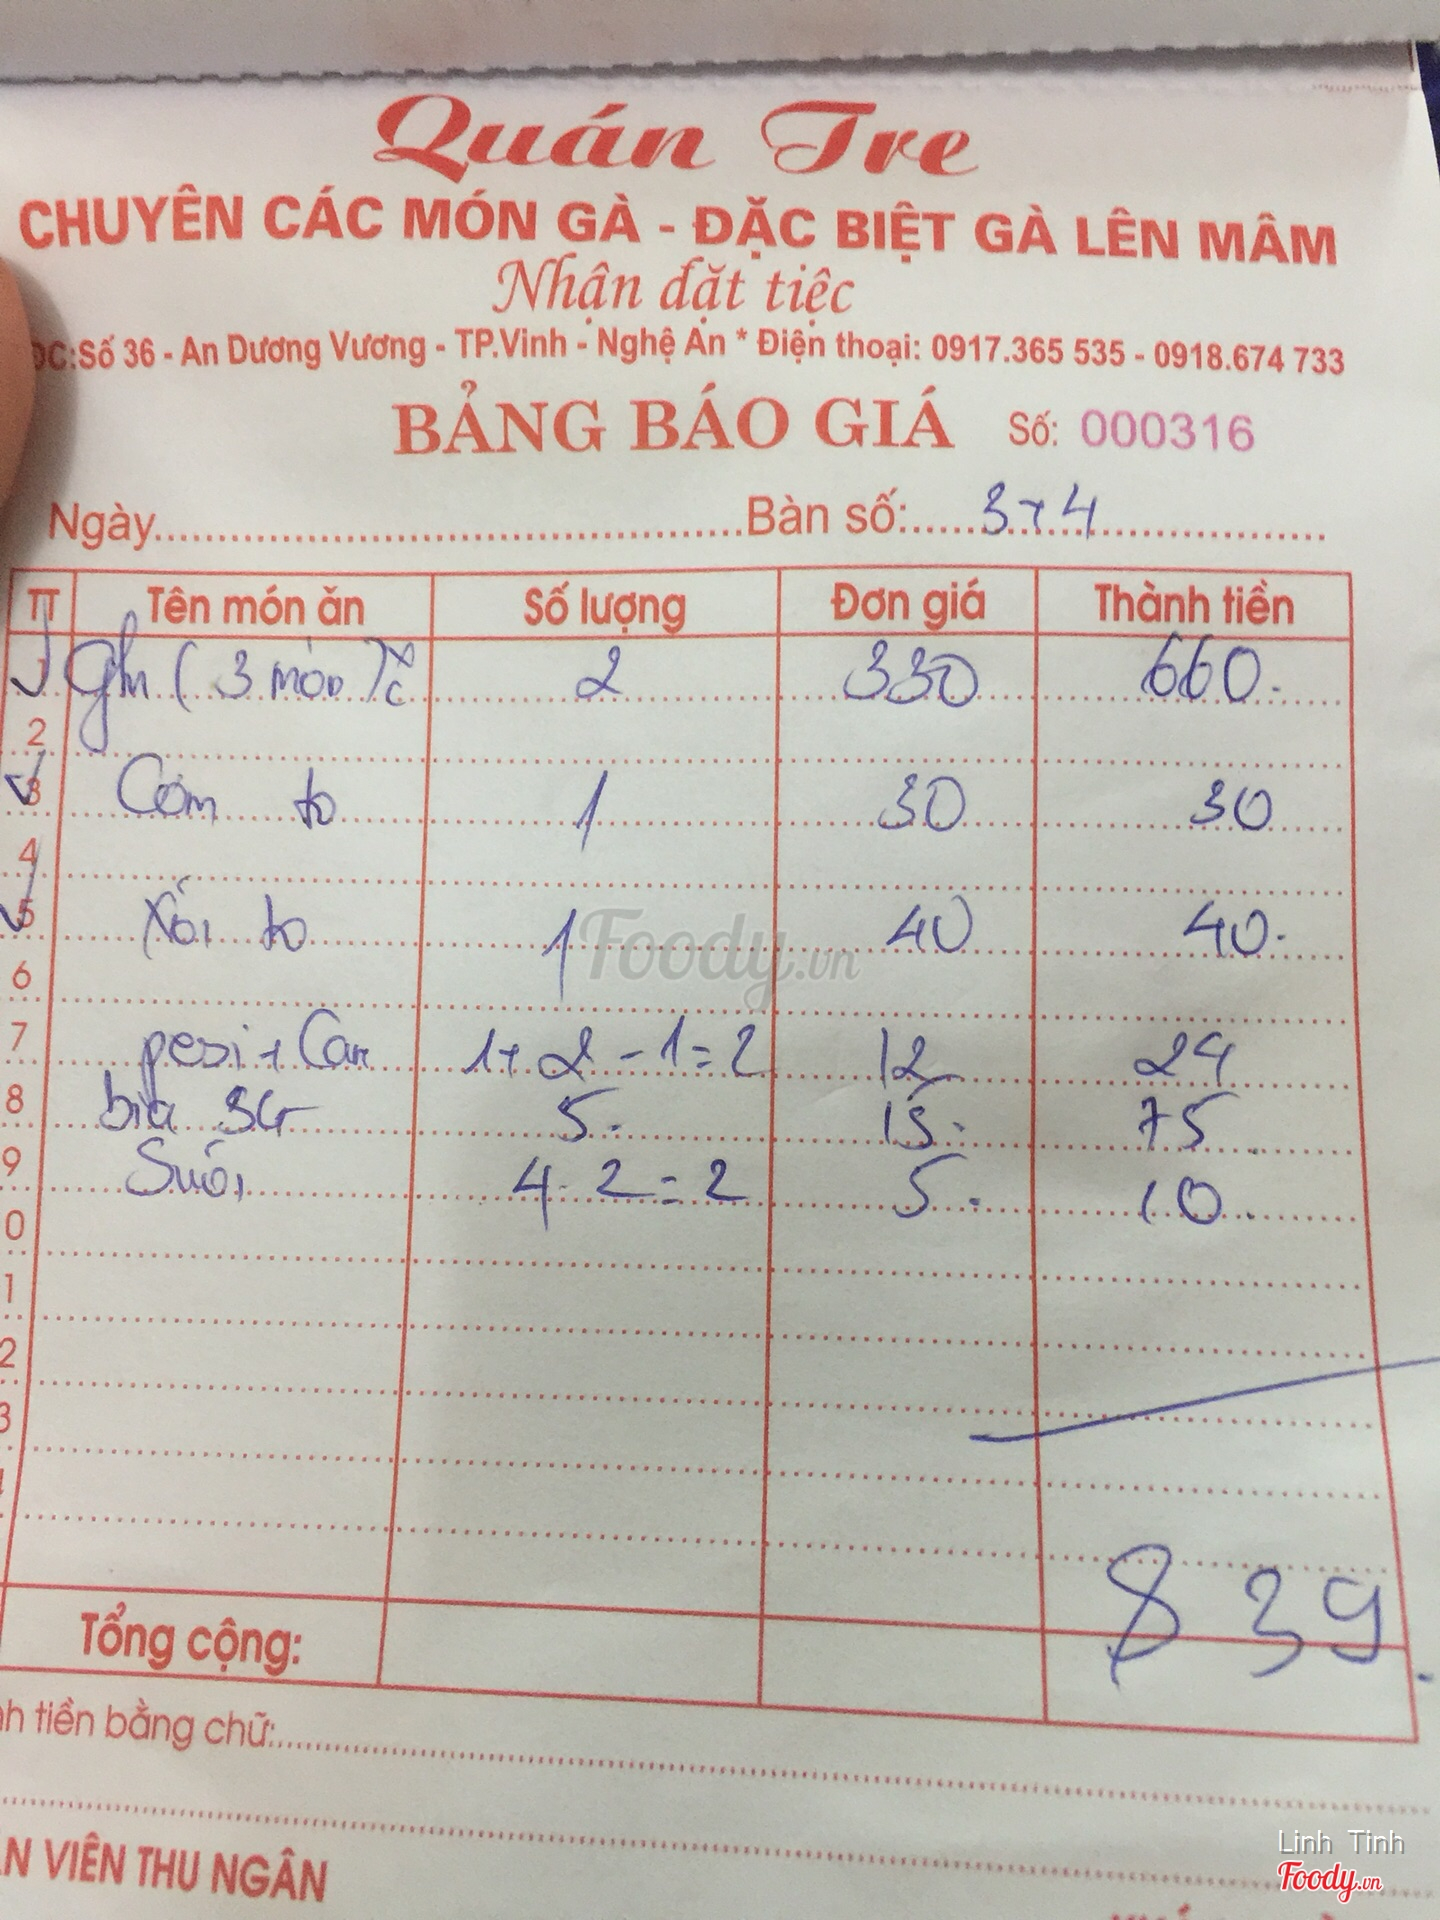 Quán Tre
CHUYÊN CÁC MÓN GÀ - ĐẶC BIỆT GÀ LÊN MÂM
Nhận đặt tiệc
ĐC:Số 36 - An Dương Vương - TP.Vinh - Nghệ An * Điện thoại: 0917.365 535 - 0918.674 733
BẢNG BÁO GIÁ Số: 000316
Ngày Bàn số: 3+4
TT Tên món ăn Số lượng Đơn giá Thành tiền
1 (3 món) 2 330 660.
2
3 Cơm to 1 30 30
4
5 Xôi to 1 40 40.
6
7 pesi + Cam 1+2-1=2 12 24
8 bia SG 5. 15. 75
9 Suối 4-2=2 5. 10.
0
1
2
3
Tổng cộng: 839.
nh tiền bằng chữ:
N VIÊN THU NGÂN
Foody.vn
Linh Tinh
Foody.vn